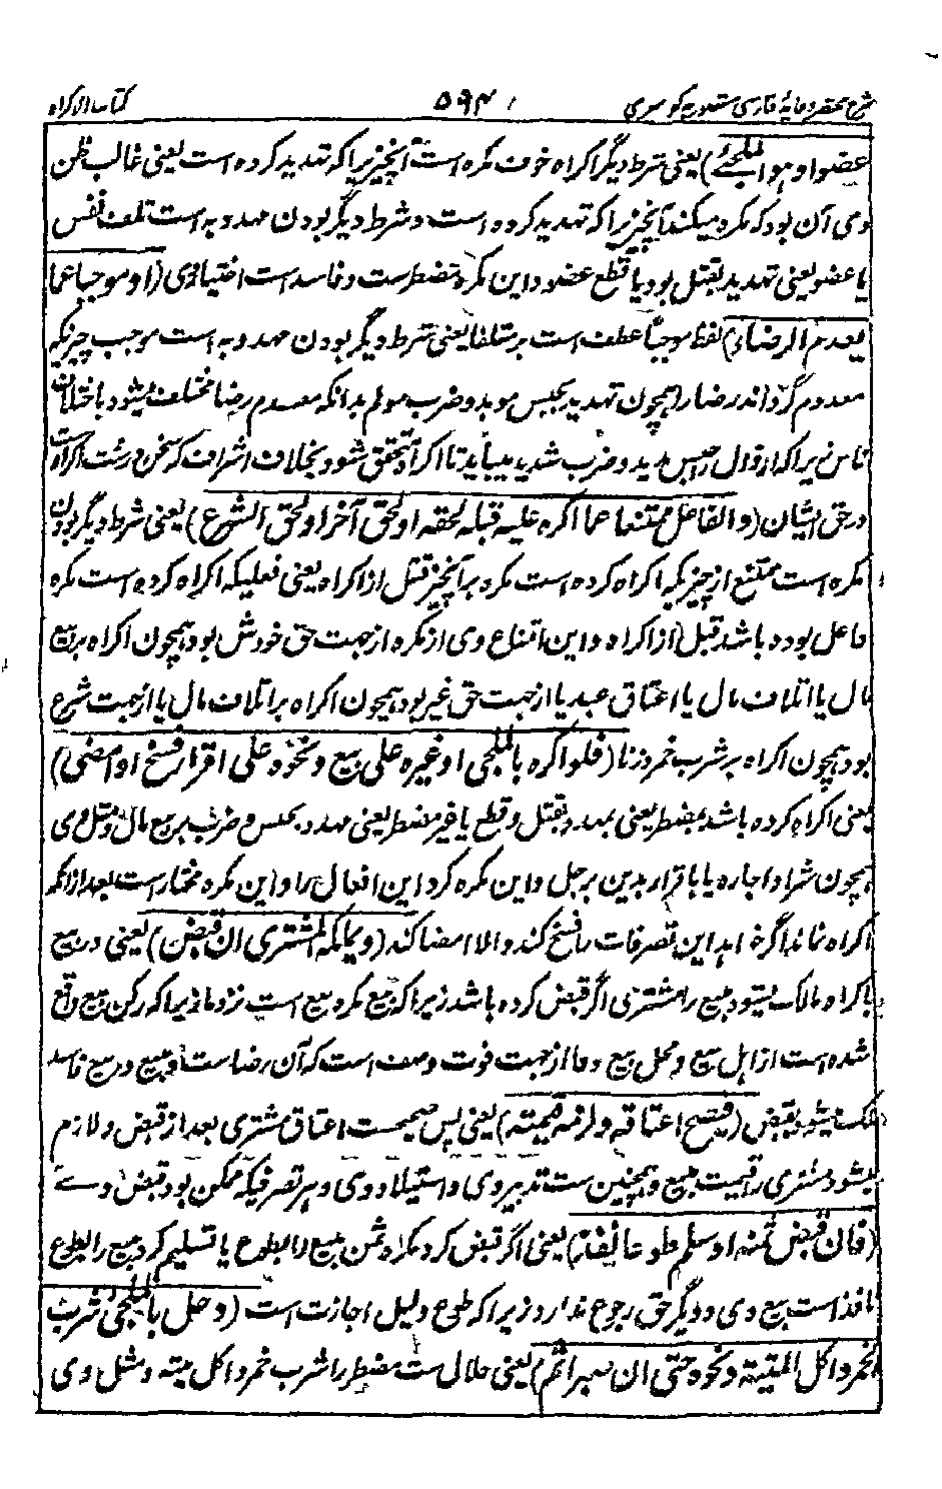 شرح مختصر وقایهٔ فارسی مشهور به کوسری ۵۹۴ کتاب الاکراه
عضوا و هو الملجئ) یعنی شرط دیگر اکراه خوف مکره است آنچیزیرا که تهدید کرده است یعنی غالب ظن
وی آن بود که مکره میکند آنچیزیرا که تهدید کرده است و شرط دیگر بودن مهدد به است تلف نفس
یا عضو یعنی تهدید بقتل بود یا قطع عضو و این مکره مضطرست و فاسد است اختیار وی (او موجبا عما
یعدم الرضاء) لفظ موجبا عطف است بر متلفا یعنی شرط دیگر بودن مهدد به است موجب چیزیکه
معدوم گرداند رضا را همچون تهدید بحبس موبد و ضرب مولم بدانکه معدم رضا مختلف میشود باختلاف
ناس زیرا که ارذال را حبس مدید و ضرب شدید میباید تا اکراه تحقق شود بخلاف اشراف که سخن درشت اکراه است
در حق ایشان (والفاعل ممتنعا عما اکره علیه قبله لحقه او لحق آخر او لحق الشرع) یعنی شرط دیگر بودن
مکره است ممتنع از چیزیکه اکراه کرده است مکره بر آنچیز قبل از اکراه یعنی فعلیکه اکراه کرده است مکره
فاعل بوده باشد قبل از اکراه و این امتناع وی از مکره از جهت حق خودش بود همچون اکراه بر بیع
مال یا اتلاف مال یا اعتاق عبد یا از جهت حق غیر بود همچون اکراه بر اتلاف مال یا از جهت شرع
بود همچون اکراه بر شرب خمر و زنا (فلو اکره بالملجی او غیره علی بیع و نحوه علی اقرار فسخ او امضی)
یعنی اکراه کرده باشد بمضطر یعنی بمهدد بقتل و قطع یا غیر مضطر یعنی مهدد بحبس و ضرب بر بیع مال و مثل وی
همچون شرا و اجاره یا باقرار بدین برجل و این مکره کرد این افعال را و این مکره مختار است بعد از آنکه
اکراه نماند اگر خواهد این تصرفات را فسخ کند والا امضا کند (و یملکه المشتری ان قبض) یعنی در بیع
باکراه مالک میشود مبیع را مشتری اگر قبض کرده باشد زیرا که بیع مکره بیع است نزد ما زیرا که رکن بیع واقع
شده است از اهل بیع و محل بیع و فا از جهت فوت وصف است که آن رضا ست و مبیع در بیع فاسد
ملک میشود بقبض (فیصح اعتاقه و لزمه قیمته) یعنی پس صحیح است اعتاق مشتری بعد از قبض و لازم
میشود مشتری را قیمت مبیع و همچنین ست تدبیر وی و استیلاد وی و هر تصرفیکه ممکن بود قبض وے
(فان قبض ثمنه او سلم طوعا نفذ) یعنی اگر قبض کرد مکره ثمن مبیع را بطوع یا تسلیم کرد مبیع را بطوع
نافذ است بیع وی و دیگر حق رجوع ندارد زیرا که طوع دلیل اجازت است (و حل بالملجئ شرب
الخمر و اکل المیتة و نحوه حتی ان صبر اثم) یعنی حلال ست مضطر را شرب خمر و اکل میته و مثل وی